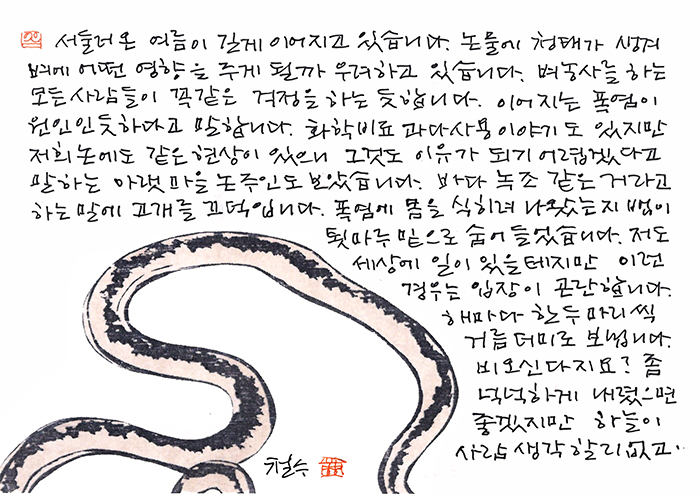 서둘러 온 여름이 길게 이어지고 있습니다. 논물에 청태가 생겨
벼에 어떤 영향을 주게 될까 우려하고 있습니다. 벼농사를 하는
모든 사람들이 꼭같은 걱정을 하는 듯합니다. 이어지는 폭염이
원인인듯하다고 말합니다. 화학비료 과다사용 이야기도 있지만
저희 논에도 같은 현상이 있으니 그것도 이유가 되기 어렵겠다고
말하는 아랫마을 논주인도 보았습니다. 바다 녹조 같은 거라고
하는 말에 고개를 끄덕입니다. 폭염에 몸을 식히려 나왔는지 뱀이
툇마루 밑으로 숨어들었습니다. 저도
세상에 일이 있을테지만 이런
경우는 입장이 곤란합니다.
해마다 한두마리씩
거름더미로 보냅니다.
비오신다지요? 좀
넉넉하게 내렸으면
좋겠지만 하늘이
사람 생각 할리 없고.
철수